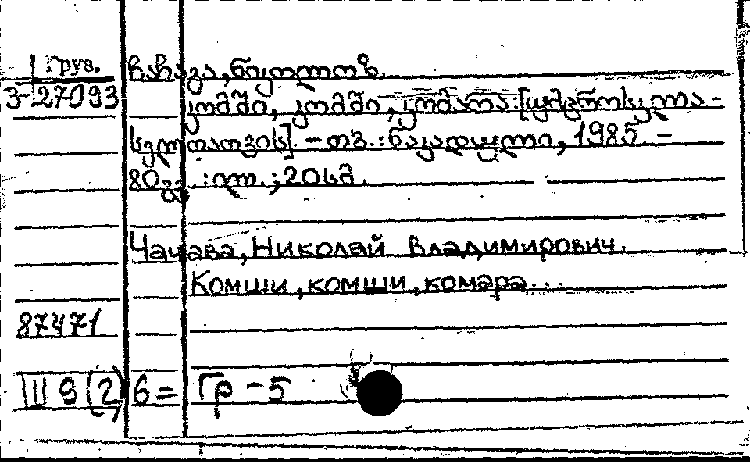 Груз.
ჩაჩავა, ნიკოლოზ.
3-27093
კომში, კომში, კომარა: [უმცროსკლა-
სელთათვის]. – თბ.: ნაკადული, 1985. –
80გვ. : ილ. ; 20სმ.
Чачава, Николай Владимирович.
Комши, комши, комара...
87471
III 9 (2) 6 = Гр - 5